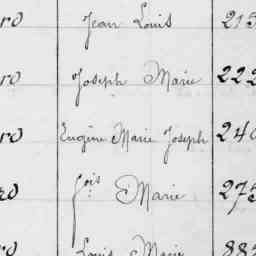 ro Jean Louis 215
ro Joseph Marie 222
ro Eugène Marie Joseph 240
ro Jois Marie 275
ro Louis Marie 88